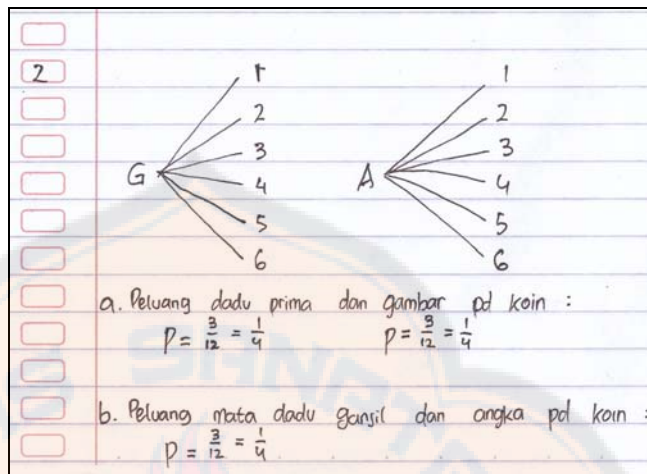 2
1 1
2 2
3 3
G 4 A 4
5 5
6 6
a. Peluang dadu prima dan gambar pd koin :
P = 3/12 = 1/4 P = 3/12 = 1/4
b. Peluang mata dadu ganjil dan angka pd koin :
P = 3/12 = 1/4